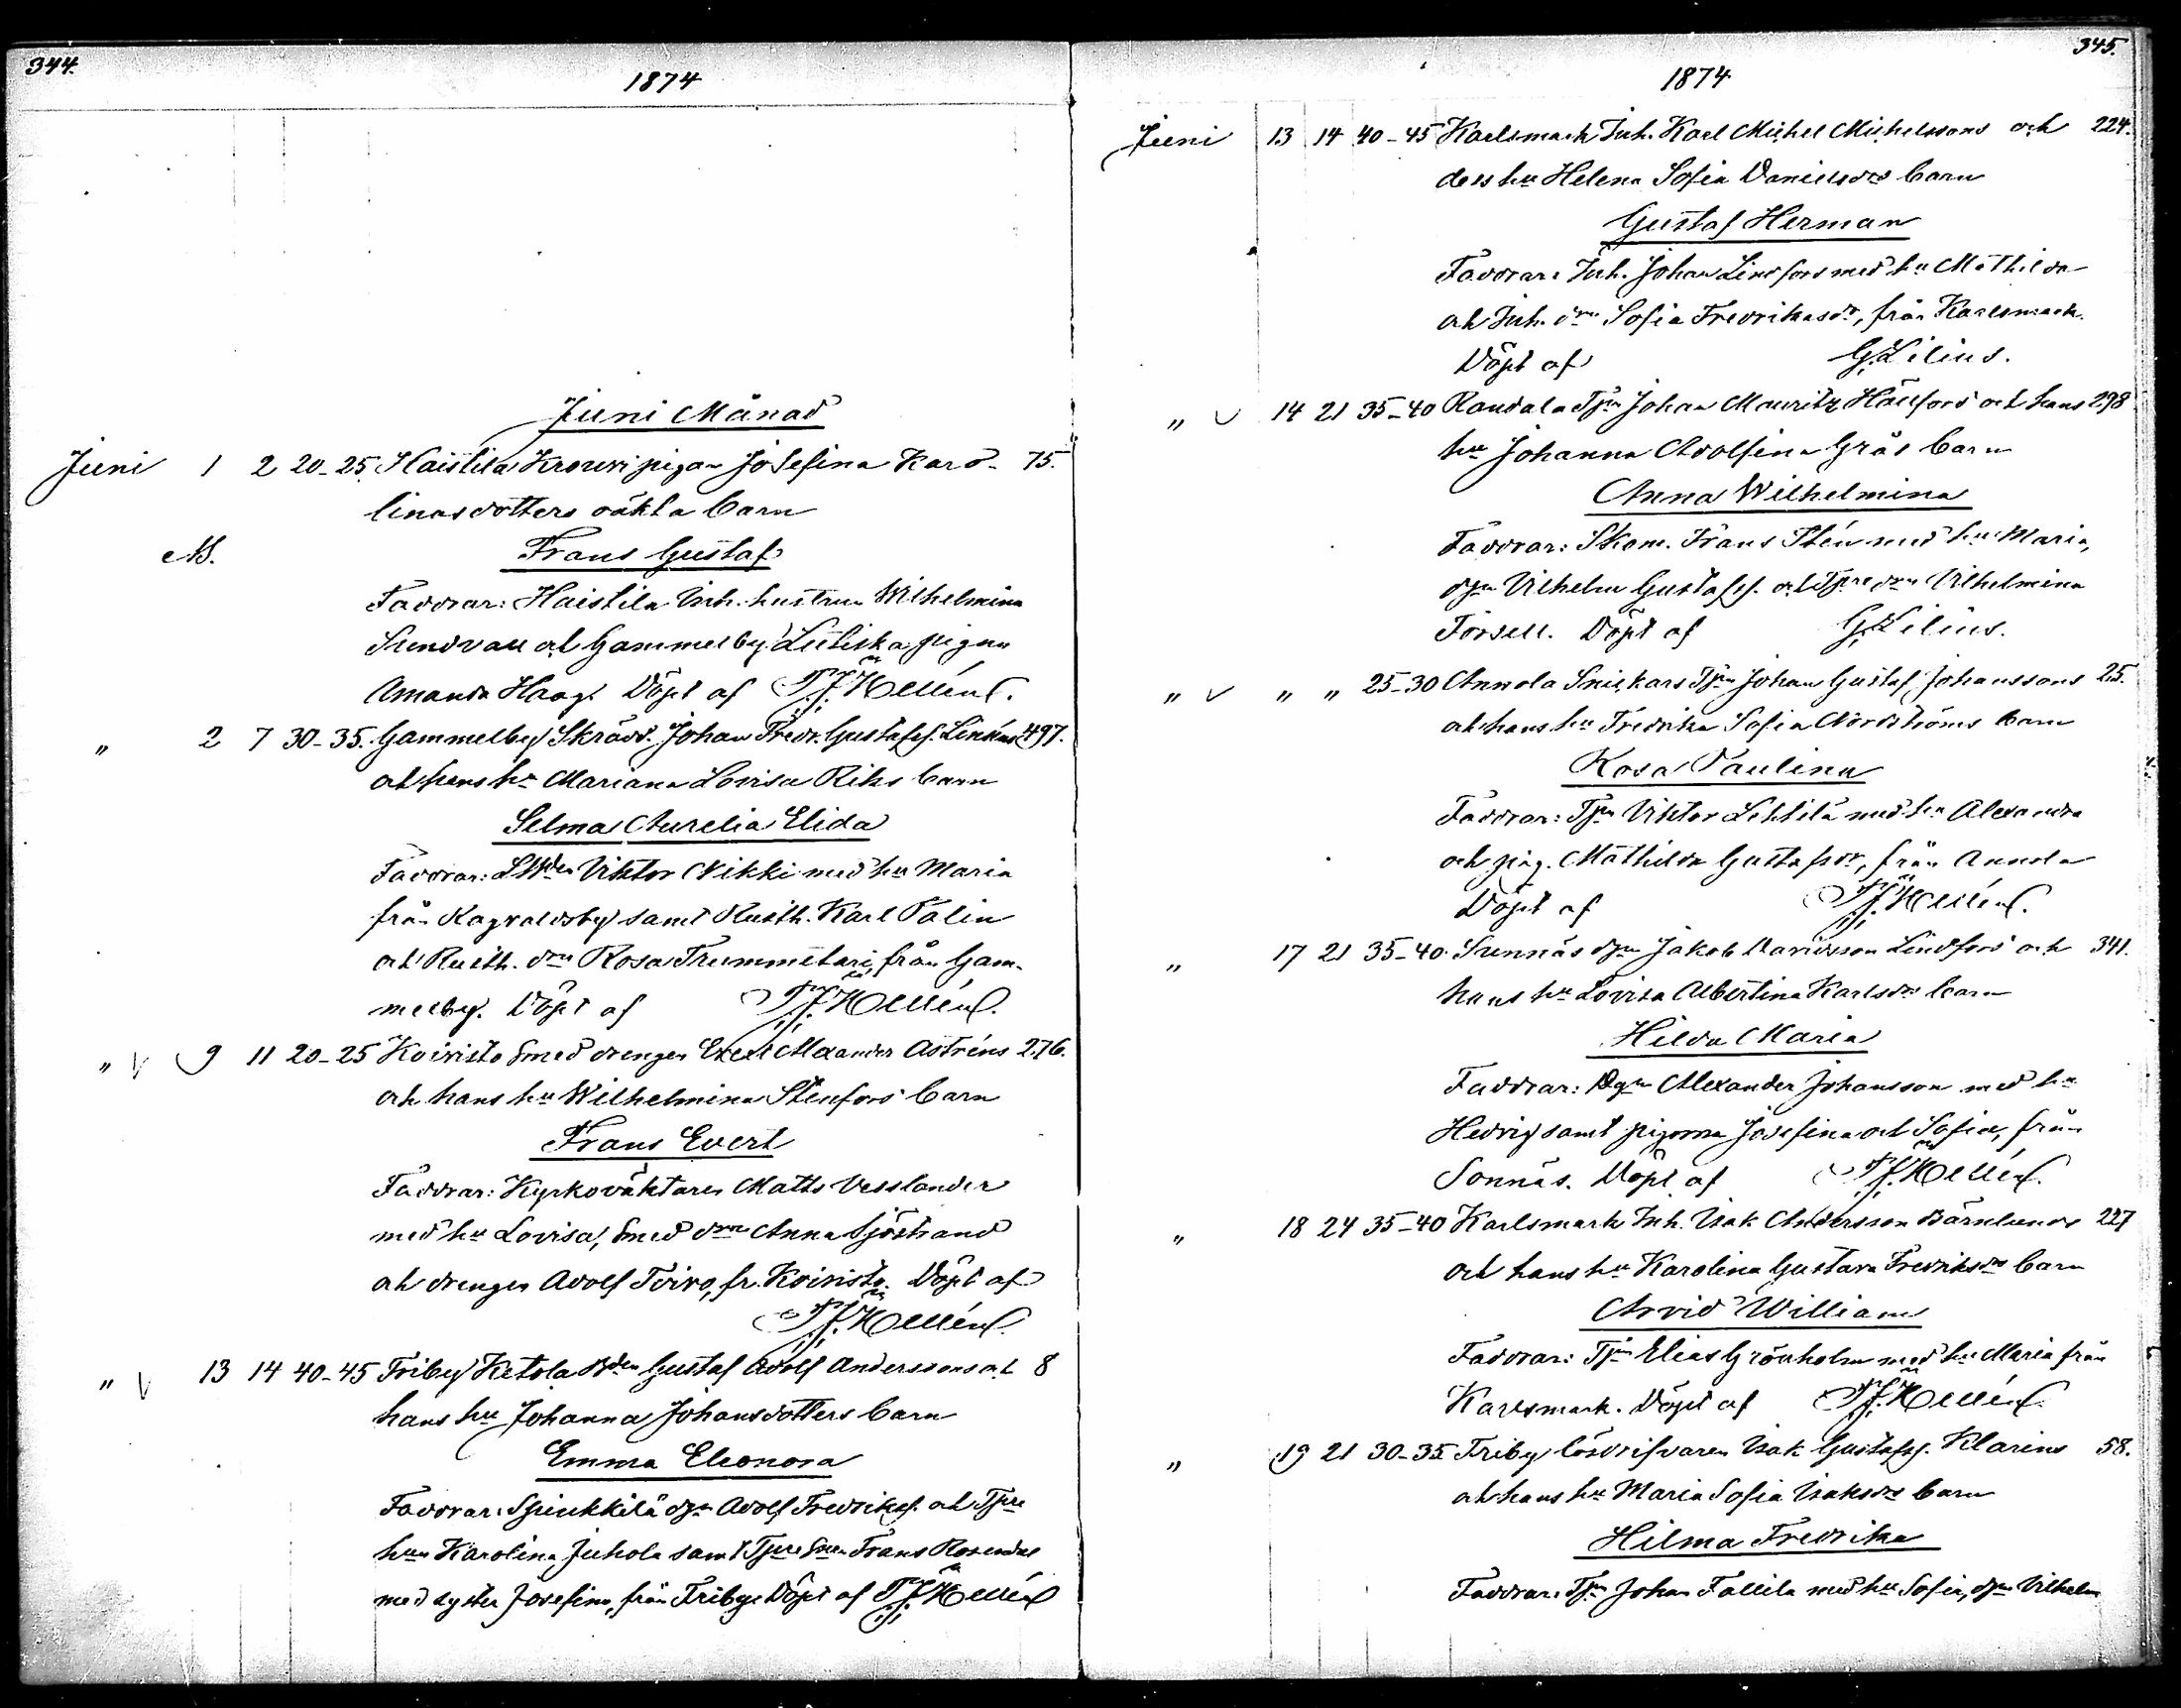 344.
1874
Juni Månad
Juni 1 2 20-25. Haistila Krouvi pigan Josefina Karo- 75.
linasdotters oäkta barn
Frans Gustaf
Faddrar: Haistila Inh. hustrun Wilhelmina
Sundvall och Gammelby pigan
Amanda Haag. Döpt af Hellén.
" 2 7 30-35. Gammelby Skrädd. Johan Fredr. Gustafss. Lenkus 497.
och hans hu Mariana Lovisa Riks barn
Selma Aurelia Elida
Faddrar: Viktor Nikki med hu Maria
från Ragvaldsby samt Rusth. Karl Palin
och Rusth. drn Rosa Trummetari, från Gam-
melby. Döpt af Hellén.
" V 9 11 20-25 Koivisto Smed drengen Evert Alexander Astréns 276.
och hans hu Wilhelmina Stenfors barn
Frans Evert
Faddrar: Kyrkoväktaren Matts Vesslander
med hu Lovisa, Smed drn Anna Sjöstrand
och drengen Adolf Toivo, fr. Koivisto. Döpt af
Hellén.
" V 13 14 40-45 Friby Ketola Bden Gustaf Adolf Anderssons och 8
hans hu Johanna Johansdotters barn
Emma Eleonora
Faddrar: Spinkkilä dgn Adolf Fredrikss. och Tjre
hun Karolina Juhola samt Tjre Sn Frans Rosendal
med syster Josefina, från Friby. Döpt af Hellén
345.
1874
Juni 13 14 40-45 Karlsmark Inh. Karl Michel Michelssons och 224.
dess hu Helena Sofia Danielsdrs barn
Gustaf Herman
Faddrar: Inh. Johan Lindfors med hu Mathilda
och Inh. drn Sofia Fredriksdr, från Karlsmark.
Döpt af G. Lilius.
" V 14 21 35-40 Randala Tjn Johan Mauritz Hällfors och hans 298
hu Johanna Adolfina Gräs barn
Anna Wilhelmina
Faddrar: Skom. Frans Stén med hu Maria,
dgn Vilhelm Gustafss. och Tjre drn Vilhelmina
Forsell. Döpt af G. Lilius.
" V " " 25-30 Annola Snickars Tjn Johan Gustaf Johanssons 25.
och hans hu Fredrika Sofia Nordströms barn
Rosa Paulina
Faddrar: Tjn Viktor Lehtilä med hu Alexandra
och pig. Mathilda Gustafsdr, från Annola
Döpt af Hellén.
" 17 21 35-40. Sunnäs dgn Jakob Davidsson Lindfors och 341.
hans hu Lovisa Albertina Karlsdrs barn
Hilda Maria
Faddrar: Dgn Alexander Johansson med hu
Hedvig samt pigorna Josefina och Sofia, från
Sonnäs. Döpt af Hellén.
" 18 24 35-40 Karlsmark Inh. Isak Andersson Bärnlunds 227
och hans hu Karolina Gustava Fredriksdrs barn
Arvid William
Faddrar: Tjn Elias Grönholm med hu Maria från
Karlsmark. Döpt af Hellén.
" 19 21 30-35 Friby lösdrifvaren Isak Gustafss. Klarins 58.
och hans hu Maria Sofia Isaksdrs barn
Hilma Fredrika
Faddrar: Tjn Johan Fallila med hu Sofia, dgn Vilhelm